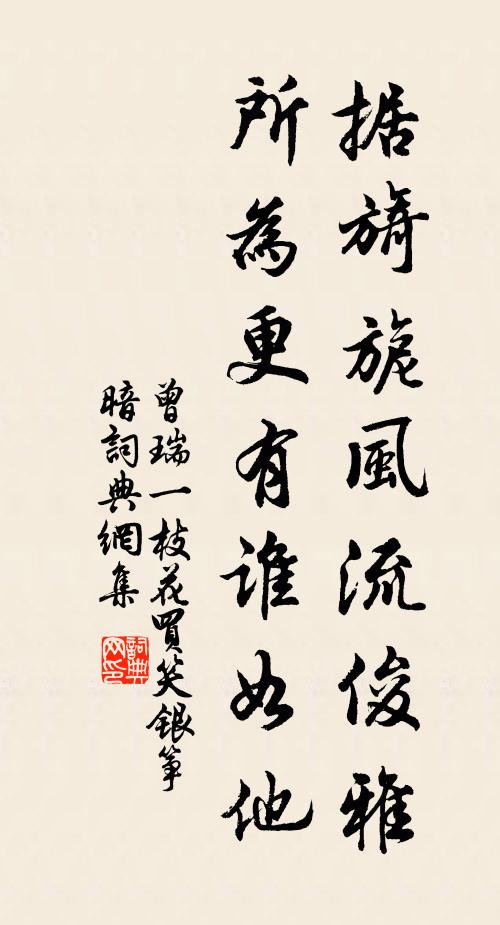 据旖旎風流俊雅
所為更有誰如他
曾瑞一枝花買笑銀箏
暗詞典網集
詞典网印